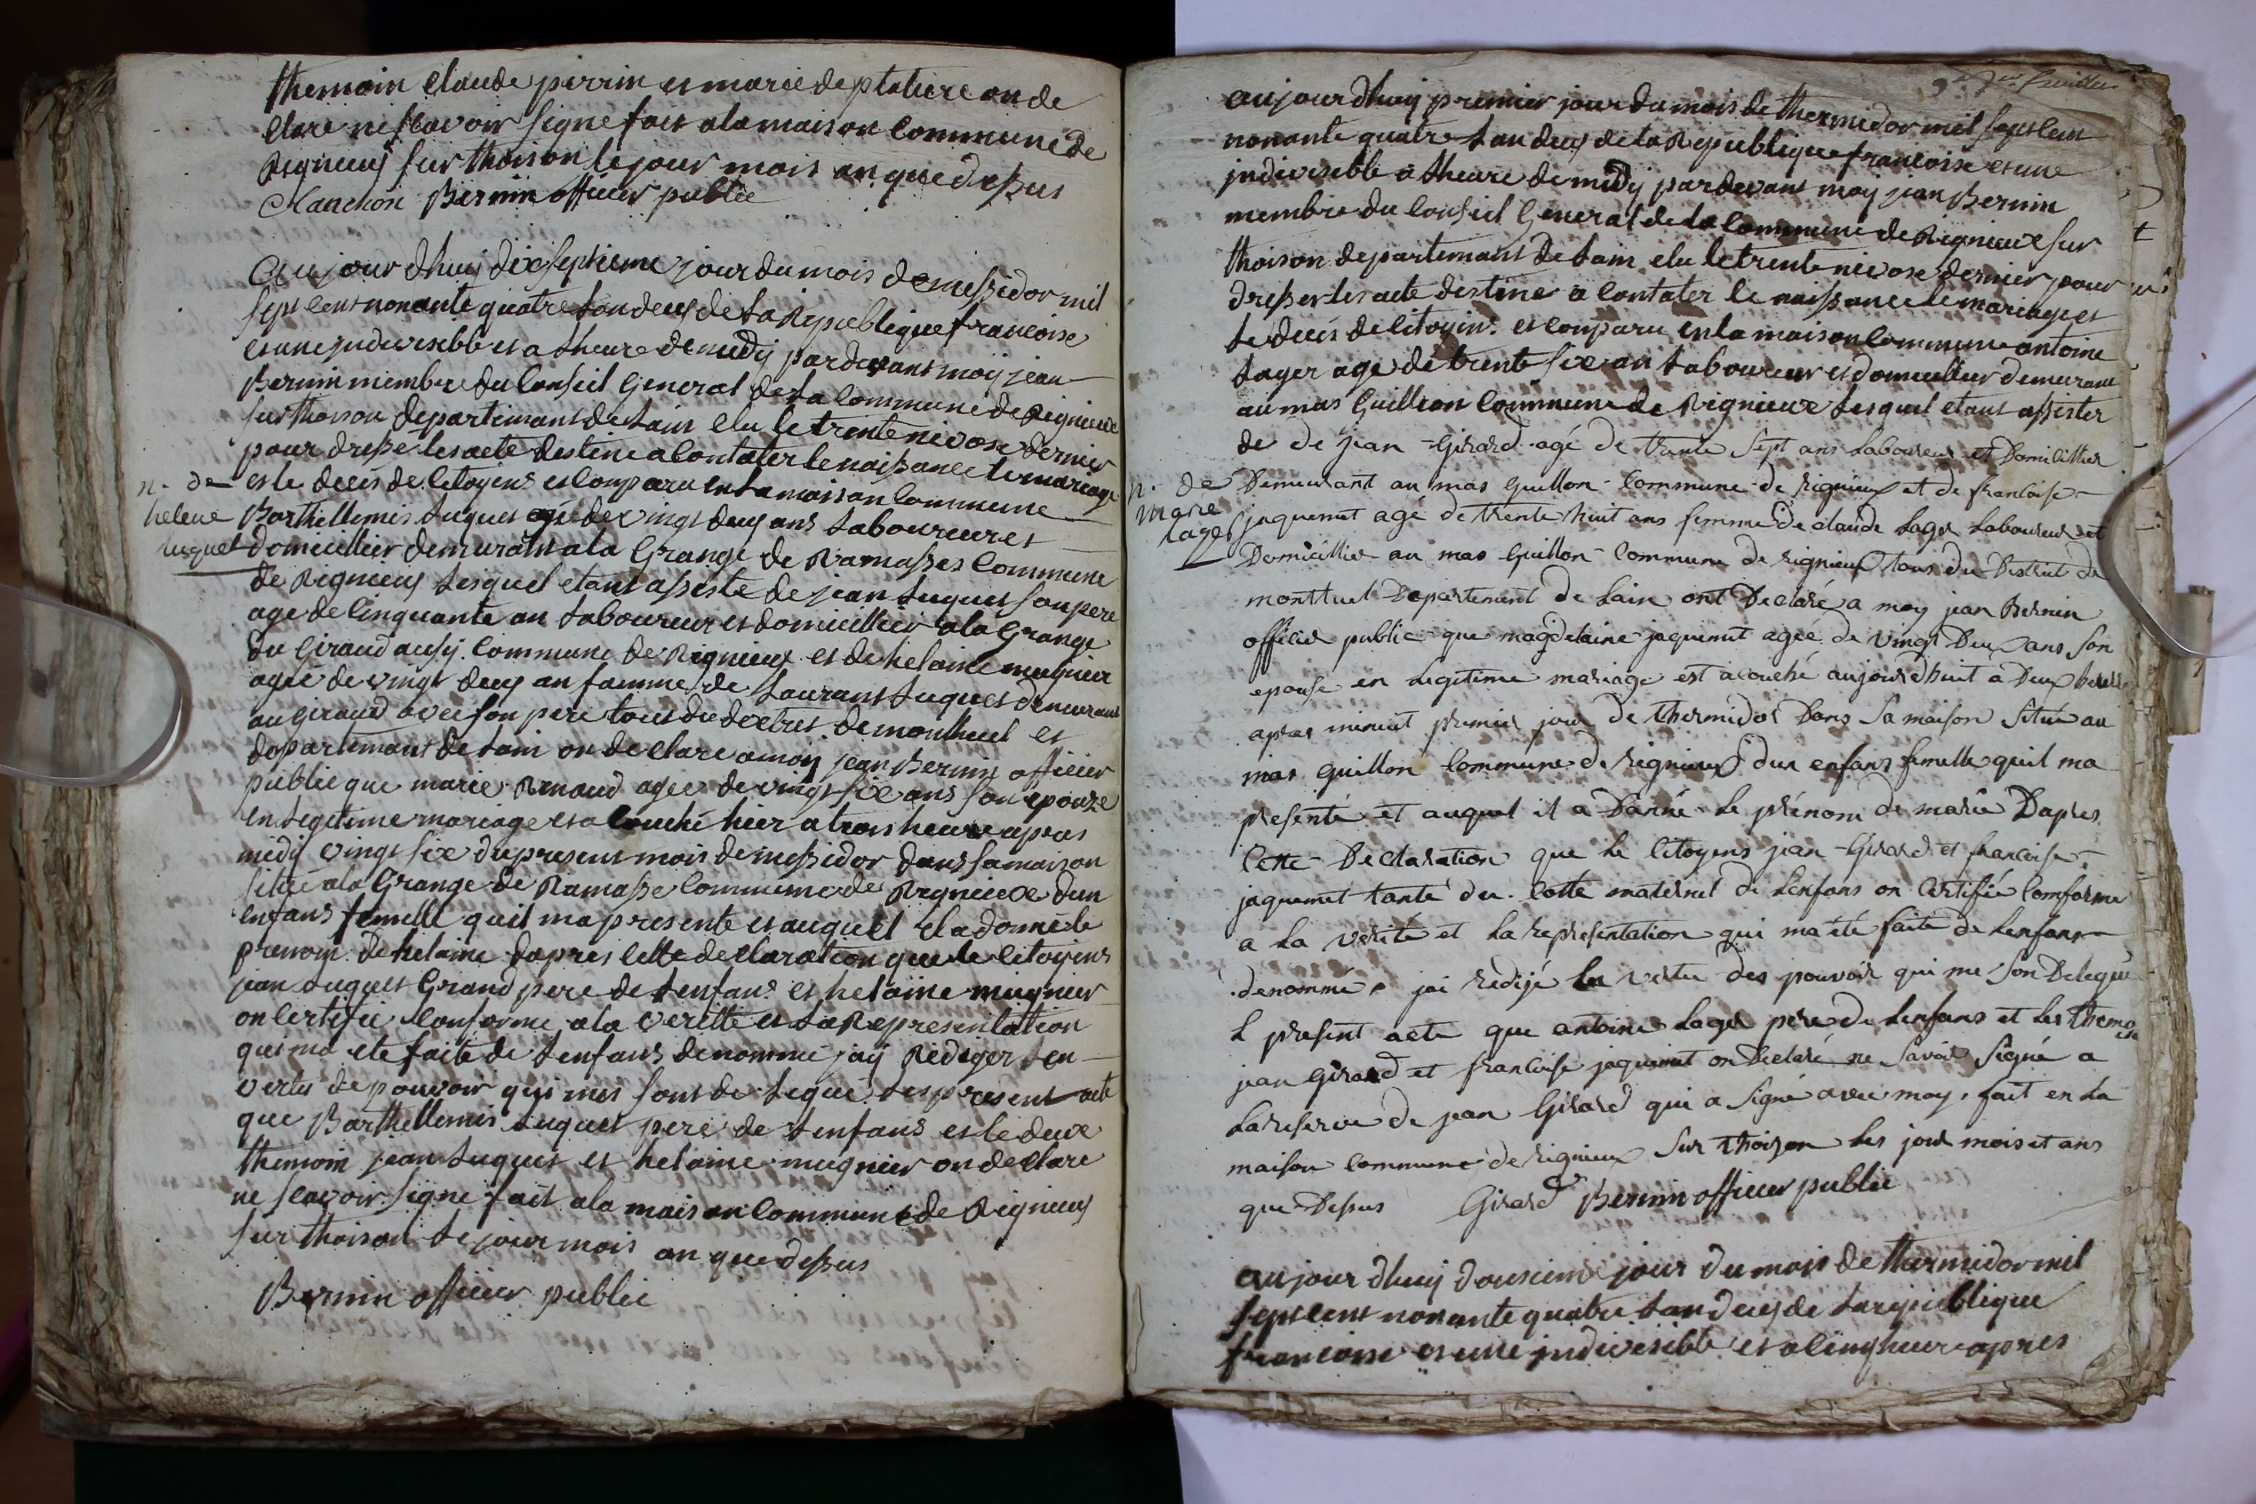 themoin claude perrin et marie de platiere on de
clare ne scavoir signe fait a la maison commune de
Rigneux sur thoison le jour mois an que dessus
Manchon Bernin officier public
aujourdhuy dix septieme jour du mois de messidor mil
sept cent nonante quatre lan deux de la Republique francoise
et une indivisible et a lheure de midy pardevant moy jean
Bernin membre du Conseil General de la commune de Rignieux
sur thoison departemant de lain elu le trente nivose dernier
pour dresse les acte destine a contater le naissance le mariage
et le decés de citoyens et conparu en la maison commune
n. de
helene
luquet
Barthellemis luquet agé de vingt deux ans laboureur et
domicillier demurant a la Grange de Ramasses Commune
de Rignieux lesquel etant assiste de jean luquet son pere
age de cinquante an laboureur et domicillier a la Grange
du Giraud aussy commune de Rignieux et de helaine mugnier
agée de vingt deux an famme de laurant luquet demurant
au Giraud avec son pere tous du dixtrict de montluel et
departemant de lain on declare a moy jean Bernin officier
public que marie Renaud agée de vingt six ans son epouze
en legitime mariage et acouché hier a trois heure apres
midy vingt six du present mois de messidor dans sa maison
situé a la Grange de Ramasse commune de Rignieux dun
enfans femelle quil ma presente et auquel el a donné le
prenom de helaine dapres cette declaration que le citoyens
jean luquet Grand pere de lenfans et helaine mugnier
on certifié conforme a la verette et la Representation
qui ma ete faite de lenfans denommé jay Rediger en
vertu de pouvoir qui mes sont delegué les present acte
que Barthellemis luquet pere de lenfans et le deux
themoin jean luquet et helaine mugnier on declare
ne scavoir signe fait a la maison commune de Rignieux
sur thoison le jour mois an que dessus
Bernin officier public
aujourdhuy premier jour du mois de thermidor mil sept cent
nonante quatre lan deux de la Republique francoise et une
jndivisible a lheure de midy pardevant moy jean Bernin
membre du Conseil General de la Commune de Rignieux sur
thoison departemant de lain elu le trente nivose dernier pour
dresser les acte destiner a contater le naissance le mariage et
le decés de citoyens et conparu en la maison commune antoine
lager age de trente six an laboureur et domicillier demurant
au mas Guillion Commune de Rignieux lesquel etant assister
de de jean Girard agé de trente sept ans laboureur et Domicillier
n. de
marie
lager
Demeurant au mas guillon commune de rignieux et de francoise
jaquemet agé de trente huit ans femme de claude lager laboureur et
Domicillié au mas guillon commune de rignieux tous du District de
montluel Departement de lain ont Declaré a moy jean Bernin
officier public que magdelaine jaquemet agée de vingt Deux ans son
epouse en legitime mariage est acouché aujourdhuit a Deux heures
apres minuit premier jour de thermidor Dans sa maison située au
mas guillon commune de rignieux dun enfans femelle quil ma
presenté et auquel il a Donné le prénom de marie Dapres
cette Declaration que le citoyens jean Girard et francoise
jaquemet tante du cotte maternel de lenfans on certifié comforme
a la verité et la representation qui ma été faite de lenfans
denommé jai redijé en vertu des pouvoir qui me son Delegué
l present acte que antoine lager pere de lenfans et les themoin
jean girard et francoise jaquemet on Declaré ne savoir signé a
la reserve de jean Girard qui a signé avec moy fait en la
maison commune de rignieux sur thoizon les jour mois et ans
que Dessus Girard Bernin officier public
aujourdhuy dousieme jour du mois de thermidor mil
sept cent nonante quatre lan deux de la republique
francoise et une jndivisible et a cinq heure apres